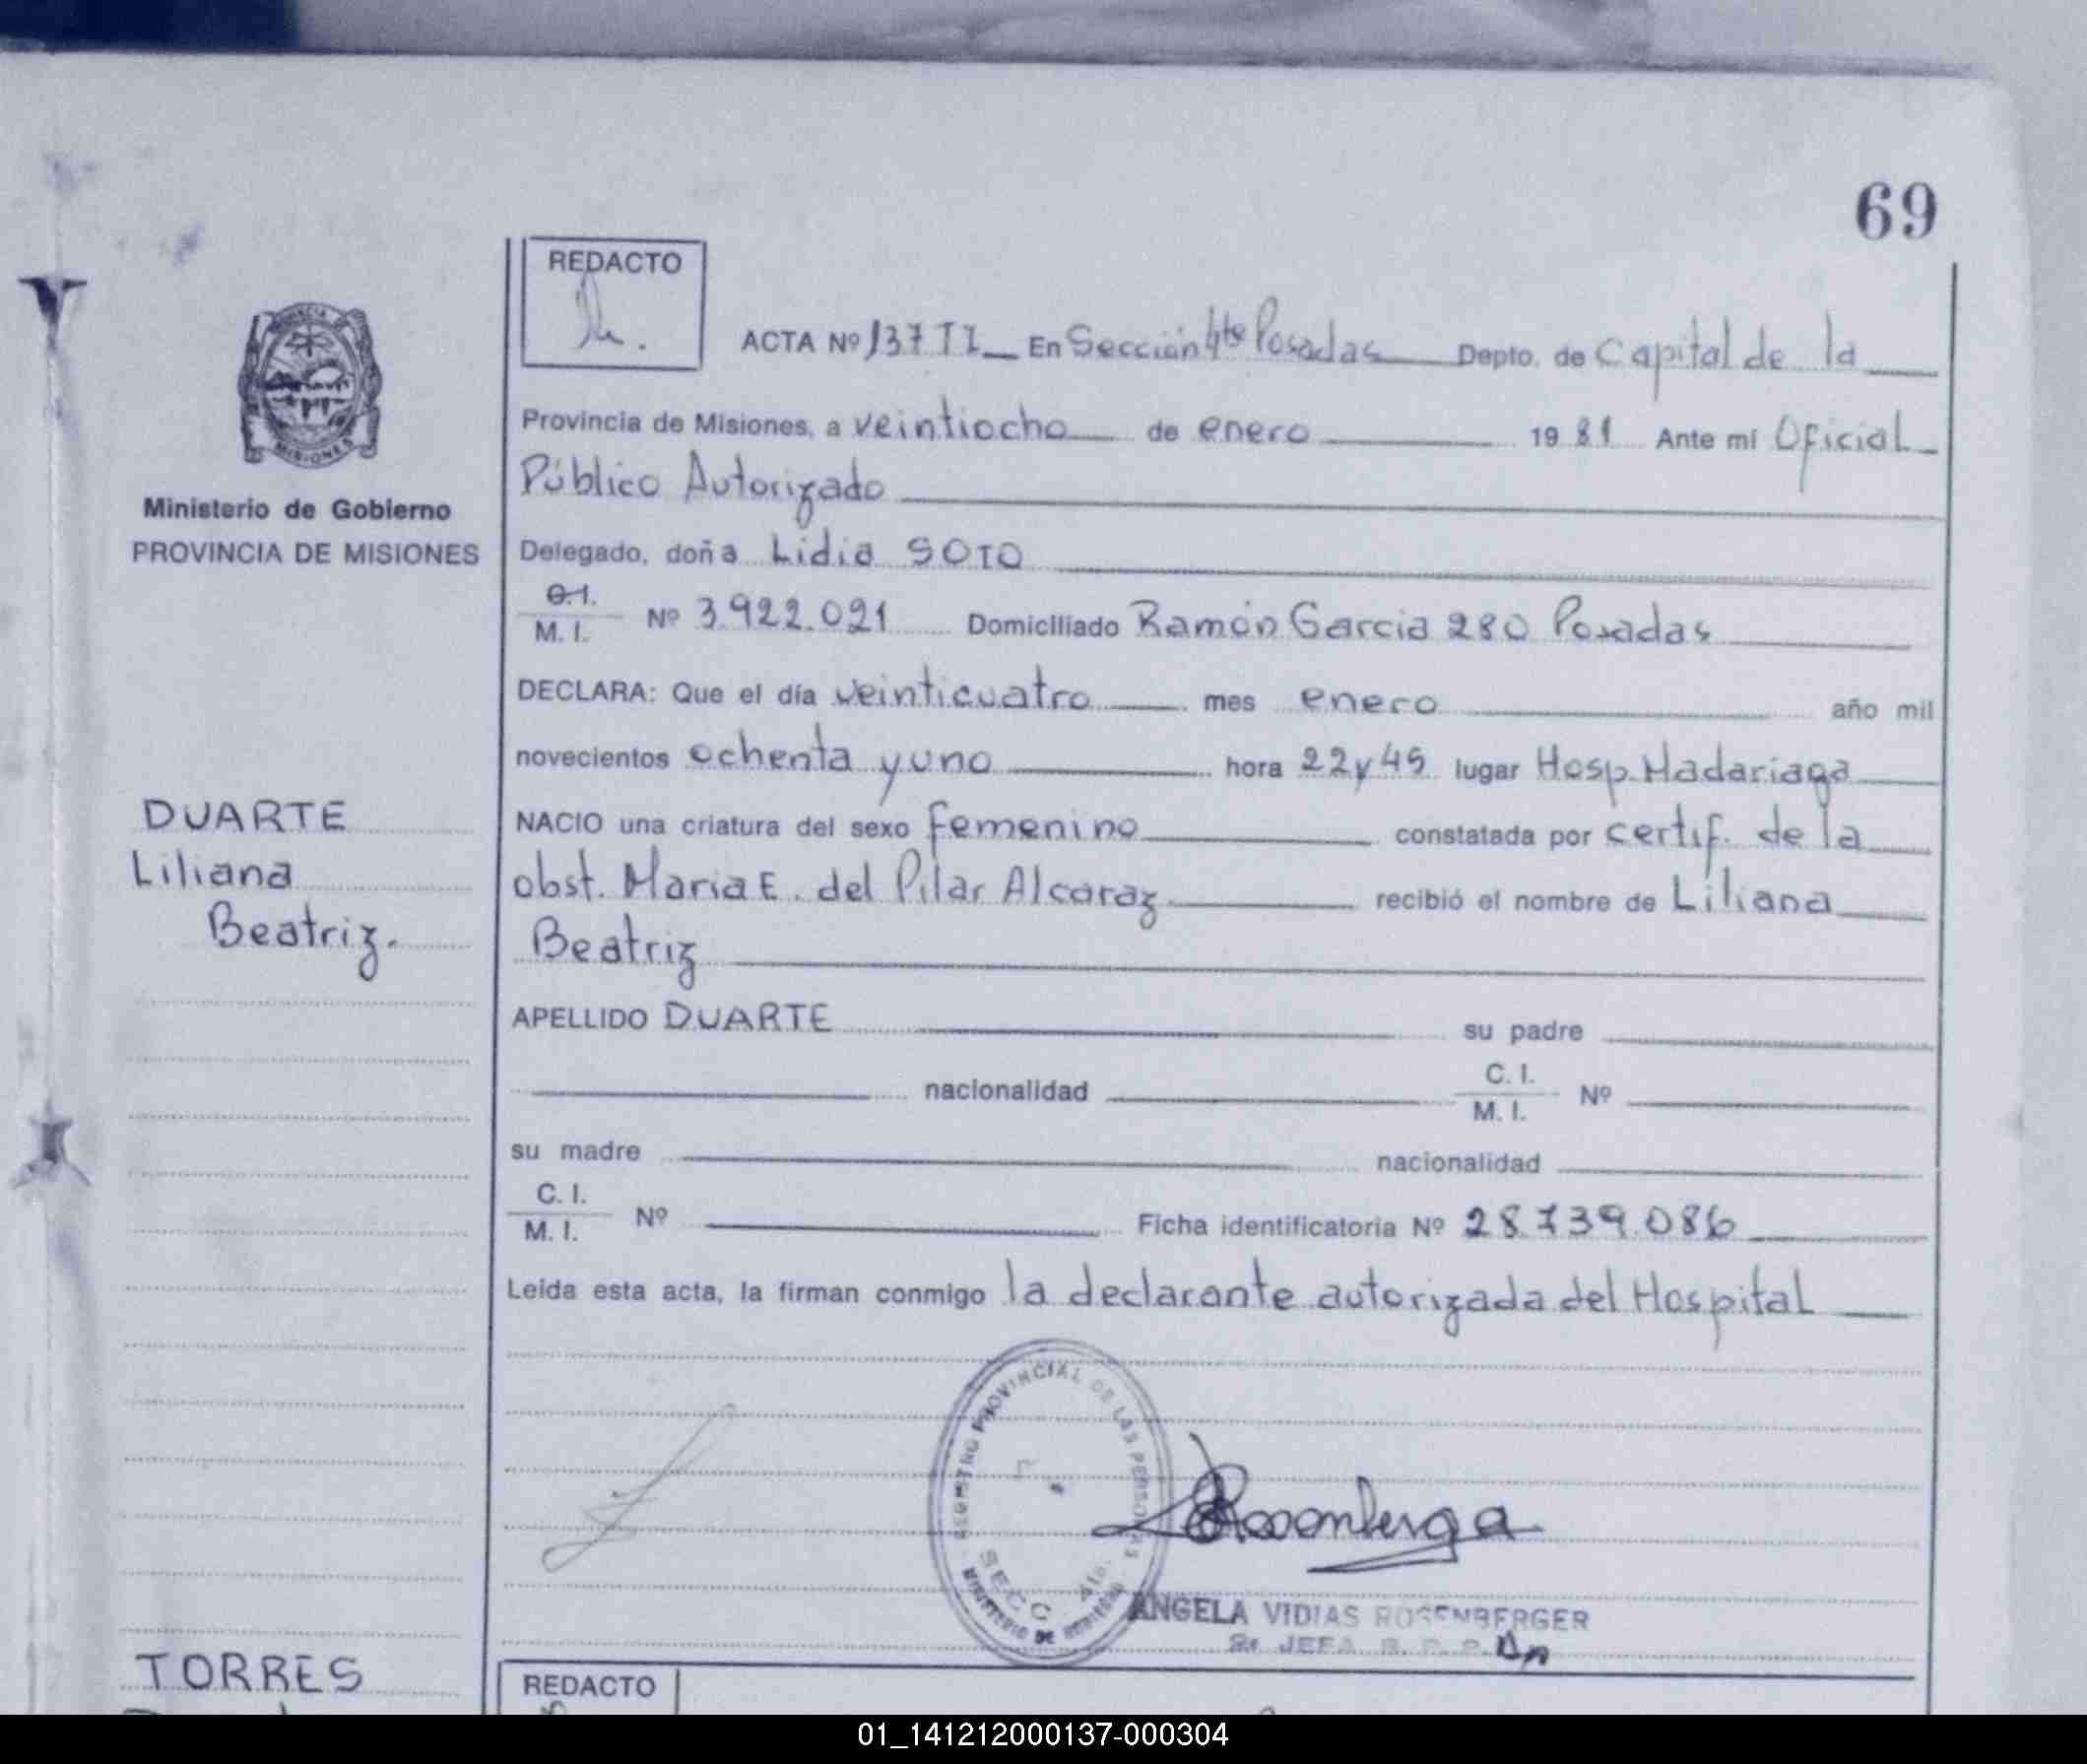 69
REDACTO
ACTA Nº 137 TI En Sección 4ta Posadas Depto. de Capital de la
Provincia de Misiones, a veintiocho de enero 1981 Ante mí Oficial
Público Autorizado
Delegado, doña Lidia SOTO
C.I. M.I. Nº 3.922.021 Domiciliado Ramón Garcia 280 Posadas
DECLARA: Que el día veinticuatro mes enero año mil
novecientos ochenta y uno hora 22 y 45 lugar Hosp. Madariaga
NACIO una criatura del sexo femenino constatada por certif. de la
obst. Maria E. del Pilar Alcaraz recibió el nombre de Liliana
Beatriz
APELLIDO DUARTE su padre
nacionalidad C. I. M. I. Nº
su madre nacionalidad
C. I. M. I. Nº Ficha identificatoria Nº 28.739.086
Leída esta acta, la firman conmigo la declarante autorizada del Hospital
PROVINCIA DE MISIONES
Ministerio de Gobierno
PROVINCIA DE MISIONES
DUARTE
Liliana
Beatriz.
REGISTRO PROVINCIAL DE LAS PERSONAS
SECC 4ta.
MINISTERIO DE GOBIERNO
ANGELA VIDIAS ROSENBERGER
2a JEFA R. P. P.
TORRES
REDACTO
01_141212000137-000304